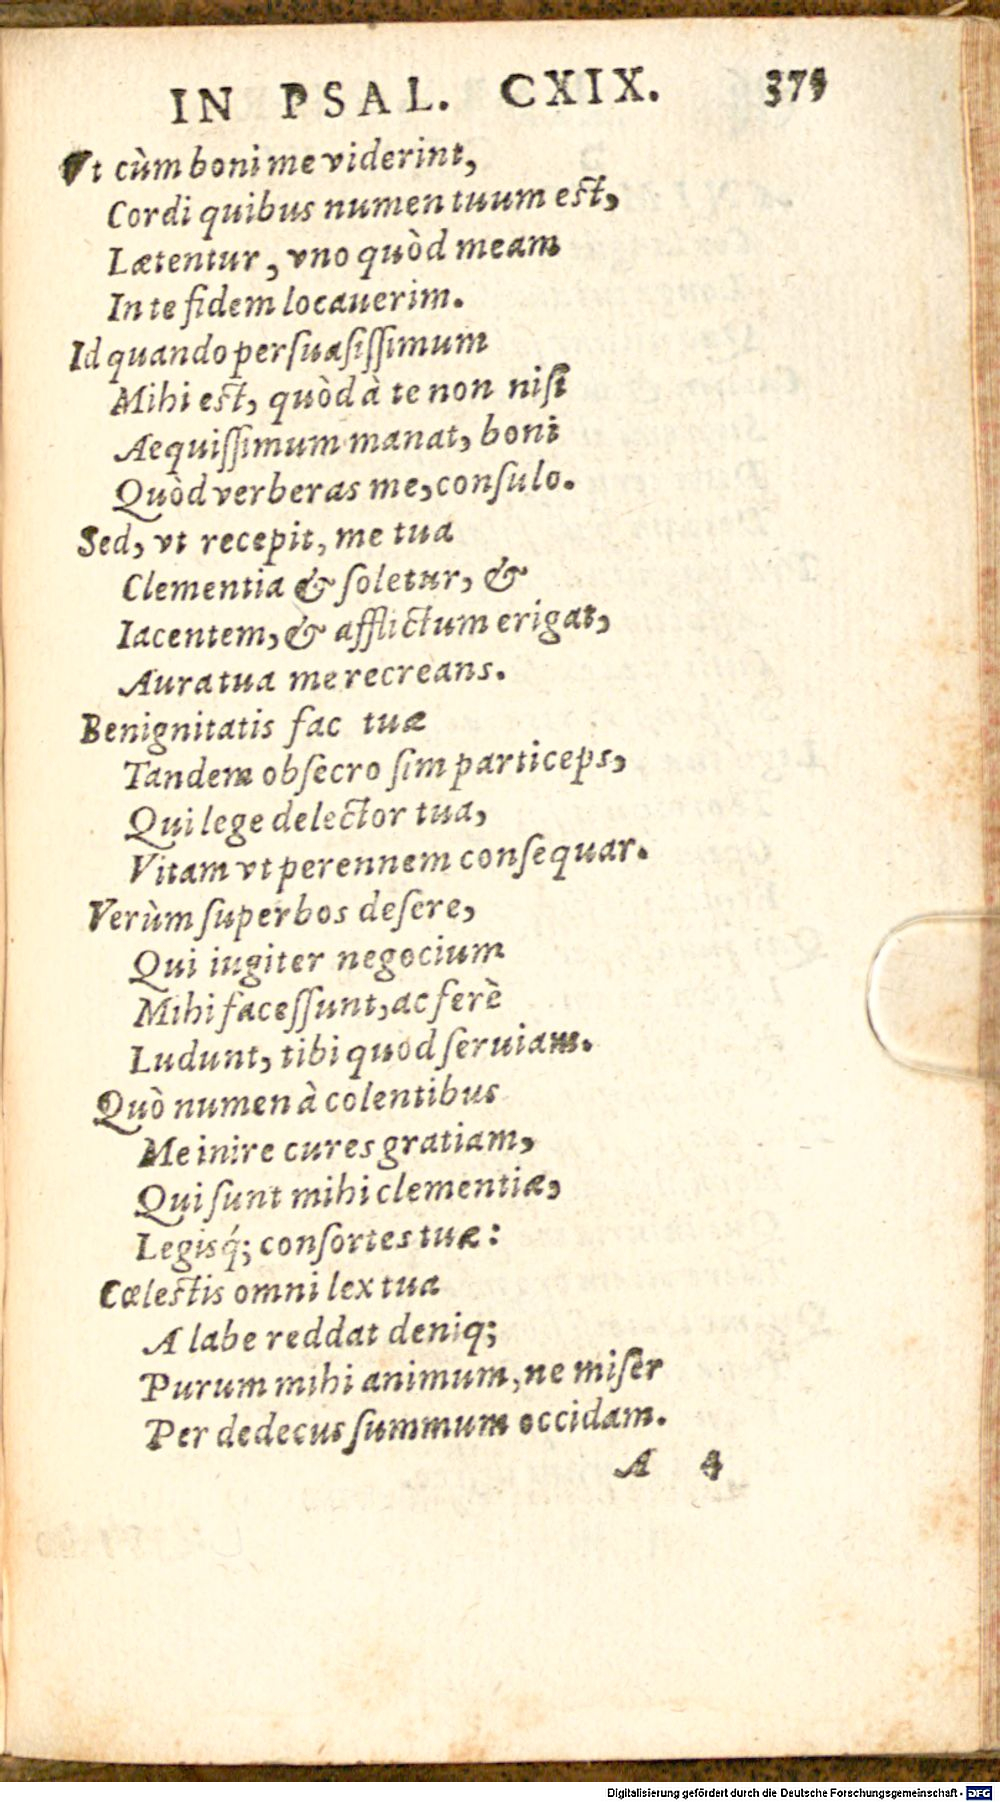 IN PSAL. CXIX. 375
Vt cùm boni me viderint,
Cordi quibus numen tuum est,
Lætentur, vno quòd meam
In te fidem locauerim.
Id quando persuasissimum
Mihi est, quòd à te non nisi
Aequissimum manat, boni
Quòd verberas me, consulo.
Sed, vt recepit, me tua
Clementia & soletur, &
Iacentem, & afflictum erigat,
Aura tua me recreans.
Benignitatis fac tuæ
Tandem obsecro sim particeps,
Qui lege delector tua,
Vitam vt perennem consequar.
Verùm superbos desere,
Qui iugiter negocium
Mihi facessunt, ac ferè
Ludunt, tibi quod seruiam.
Quò numen à colentibus
Me inire cures gratiam,
Qui sunt mihi clementiæ,
Legisq́; consortes tuæ:
Cœlestis omni lex tua
A labe reddat deniq;
Purum mihi animum, ne miser
Per dedecus summum occidam.
A 4
Digitalisierung gefördert durch die Deutsche Forschungsgemeinschaft - DFG